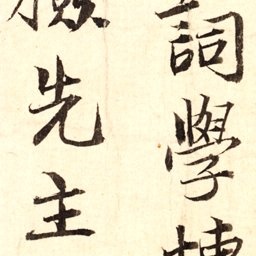 詞學
先主